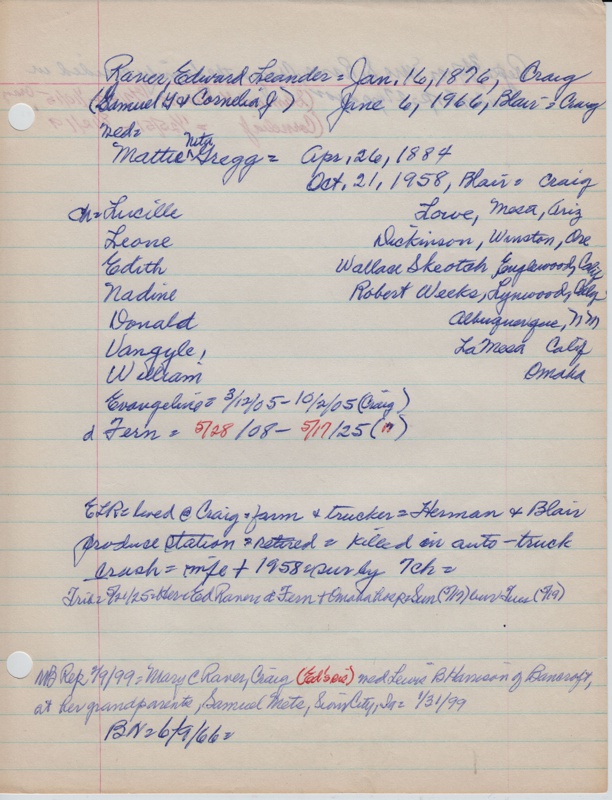 Raver, Edward Leander = Jan. 16, 1876, Craig
(Samuel G & Cornelia J) June 6, 1966, Blair = Craig
med =
Mattie Neta Gregg = Apr, 26, 1884
Oct. 21, 1958, Blair = Craig
ch = Lucille Lowe, Mesa, Ariz
Leone Dickinson, Winston, Ore
Edith Wallace Skeotch Englewood, Calif
Nadine Robert Weeks, Lynwood, Calif
Donald Albuquerque, N M
Vangyle, La Mesa Calif
William Omaha
Evangeline = 3/12/05 - 10/2/05 (Craig)
d Fern = 5/28/08 - 5/17/25 (")
ELR = lived @ Craig = farm & trucker = Herman & Blair
produce station = retired = killed in auto-truck
crash = wife + 1958 = sur by 7ch =
Ed Raver d Fern + Omaha hosp = Sun
NB Rep 2/9/99 = Mary C Raver, Craig (Ed's sis) med Lewis B Harrison of Bancroft,
at her grandparents, Samuel Metz, Sioux City, Ia = 1/31/99
BN = 6/9/66 =